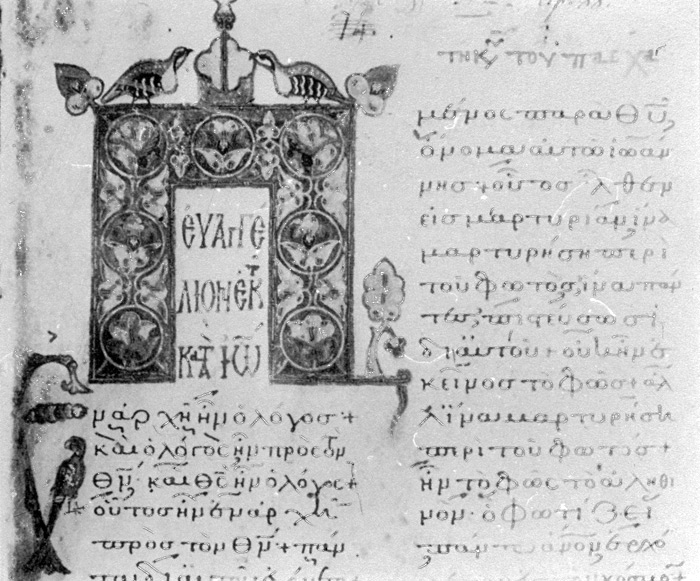 ΕΥΑΓΓΕ
ΛΙΟΝ ἐκ
ΚΑΤ ΙΩ
ν ἀρχῆ ἦν ὁ λόγος +
καὶ ὁ λόγος ἦν πρὸς τὸν
Θν· καὶ Θς ἦν ὁ λόγος +
οὗτος ἦν ἐν ἀρχῆ
πρὸς τὸν Θν + πάν
τῆ κυ τοῦ πάσχα
μένος παρὰ Θυ
ὄνομα αὐτῶ ἰωάν
νης + οὗτος ἦλθεν
εἰς μαρτυρίαν ἵνα
μαρτυρήση περὶ
τοῦ φωτός, ἵνα πάν
τες πιστεύσωσι
δι' αὐτοῦ + οὐκ ἦν ἐ
κεῖνος τὸ φῶς + ἀλ
λ' ἵνα μαρτυρήση
περὶ τοῦ φωτός +
ἦν τὸ φῶς τὸ ἀληθι
νόν· ὃ φωτίζει
πάντα ἄνον ἐρχό